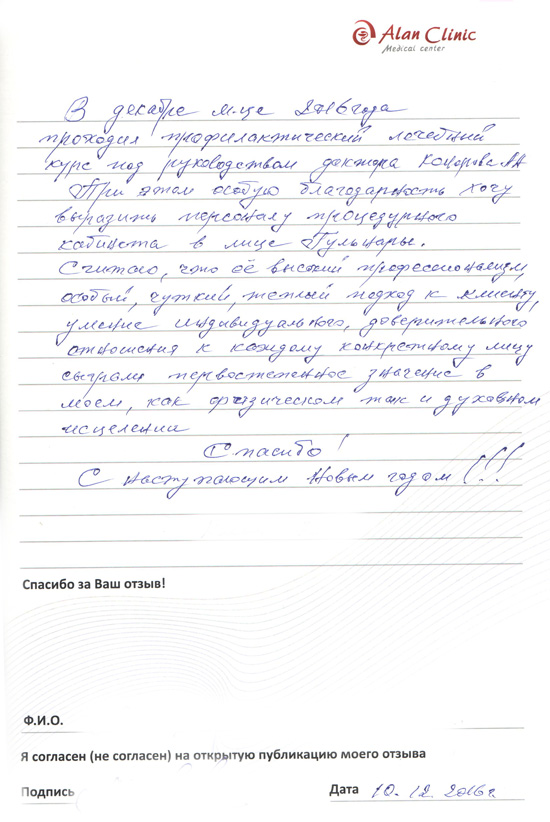 Alan Clinic
Medical center
В декабре м-це 2016 года
проходил профилактический лечебный
курс под руководством доктора
При этом особую благодарность хочу
выразить персоналу процедурного
кабинета в лице Гульнары.
Считаю, что её высокий профессионализм,
особый, чуткий, теплый подход к клиенту,
умение индивидуального, доверительного
отношения к каждому конкретному лицу
сыграли первостепенное значение в
моем, как физическом так и духовном
исцелении
Спасибо!
С наступающим Новым годом!!!
Спасибо за Ваш отзыв!
Ф.И.О.
Я согласен (не согласен) на открытую публикацию моего отзыва
Подпись
Дата 10.12.2016г